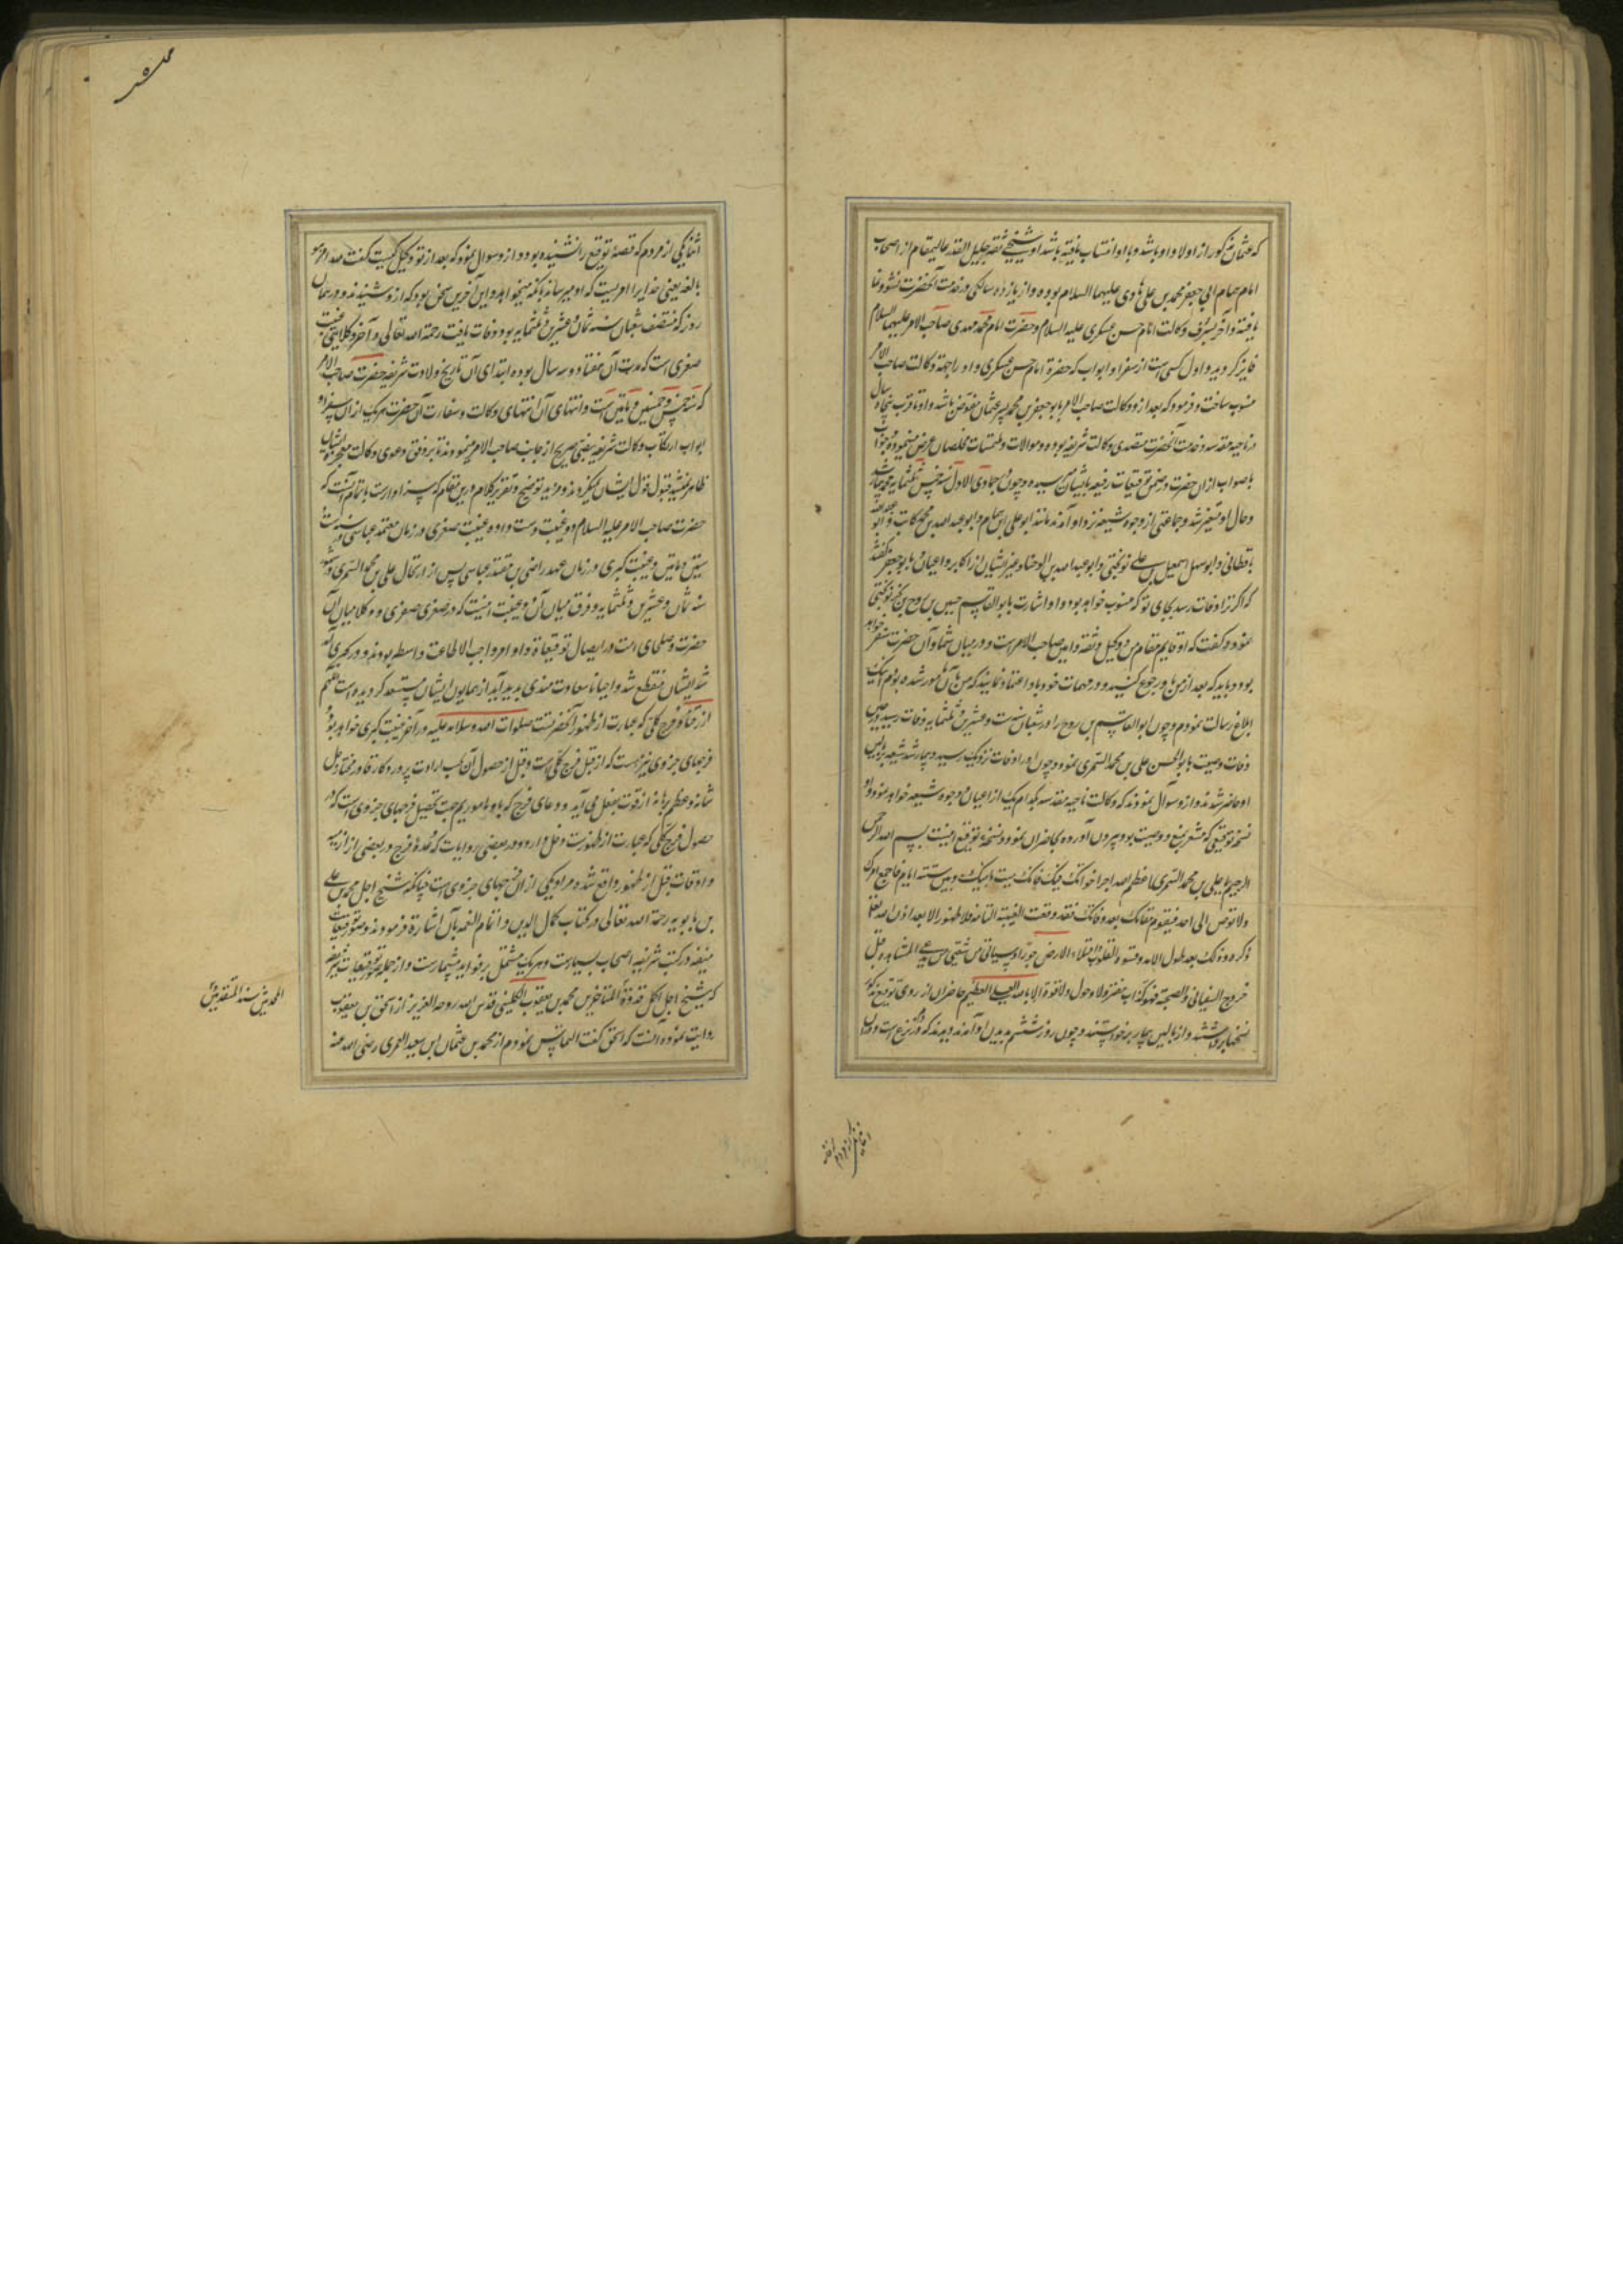 که عثمان مذکور از اولاد او باشد و با او انتساب یافته باشد او شیخی ثقه جلیل القدر عالیمقام از اصحاب
امام همام ابی جعفر محمد بن علی هادی علیهما السلام بوده و از یازده سالگی در خدمت آنحضرت نشو و نما
یافته و آخر بشرف وکالت امام حسن عسکری علیه السلام و حضرت امام محمد مهدی صاحب الامر علیهما السلام
فایز گردیده و اول کسی است از سفرا و ابواب که حضرة امام حسن عسکری و او را جهة وکالت صاحب الامر
منسوب ساخت و فرمود که بعد ازو وکالت صاحب الامر بابو جعفر بن محمد پسر عثمان مفوض باشد و او تا قرب پنجاه سال
در ناحیه مقدسه و خدمت آنحضرت متصدی وکالت شریفه بوده و سوالات و ملتمسات مخلصان عرض مینموده و جواب
با صواب ازان حضرت در ضمن توقیعات رفیعه بایشان میرسیده و چون جمادی الاول سنه خمس و ثلثمایه
و حال او متغیر شد و جماعتی از وجوه شیعه نزد او آمدند مانند ابو علی ابن همام و ابو عبد الله بن محمد کاتب و ابو عبد الله
باقطانی و ابو سهل اسمعیل بن علی نوبختی و ابو عبد الله بن الوجناء و غیر ایشان از اکابر و اعیان و بابو جعفر گفتند
که اگر ترا وفات رسد بجای تو که منسوب خواهد بود و او اشارت بابو القاسم حسین بن روح بن نوبختی
نمود و گفت که او قایم مقام من و وکیل و ثقه و امین صاحب الامر است و در میان شما و آن حضرت سفیر خواهد
بود و باید که بعد از من باو رجوع کنید و در مهمات خود باو اعتماد نمایید که من بآن مامور شده بودم اینک
ابلاغ رسالت نمودم و چون ابو القاسم بن روح را در شعبان سنه ست و عشرین و ثلثمایه وفات رسید در حین
وفات وصیت بابو الحسن علی بن محمد السمری نمود و چون او را وفات نزدیک رسید و بیمار شد شیعه ببالین
او حاضر شدند و ازو سوال نمودند که وکالت ناحیه مقدسه بکدام یک از اعیان و وجوه شیعه خواهد بود او
نسخه توقیعی که مشعر بمنع و وصیت بود بیرون آورده بحاضران نمود و نسخه توقیع اینست بسم الله الرحمن
الرحیم یا علی بن محمد السمری اعظم الله اجر اخوانک فیک فانک میت ما بینک و بین ستة ایام فاجمع امرک
ولا توص الی احد فیقوم مقامک بعد وفاتک فقد وقعت الغیبة التامة فلا ظهور الا بعد اذن الله تعالی
ذکره و ذلک بعد طول الامد و قسوة القلوب و امتلاء الارض جورا و سیاتی من شیعتی من یدعی المشاهده قبل
خروج السفیانی و الصیحة فهو کذاب مفتر ولا حول ولا قوة الا بالله العلی العظیم حاضران از روی توقیع مذکور
نسخها برداشتند و از بالین بیمار برخواستند و چون روز ششم بدیدن او آمدند دیدند که در نزع است و دران
اثنا یکی از مردم
اثنا یکی از مردم که قصه توقیع را نشنیده بود و ازو سوال نمود که بعد از تو وکیل کیست گفت لله امر هو
بالغه یعنی خدایرا امریست که او میرساند بآنکه میخواهد و این آخرین سخن بود که ازو شنیدند و در همان
روز که منتصف شعبان سنه ثمان و عشرین و ثلثمایه بود وفات یافت رحمة الله تعالی و آخر وکلای غیبت
صغری است که مدت آن هفتاد و سه سال بوده ابتدای آن تاریخ ولادت شریفه حضرت صاحب الامر
که سنه خمس و خمسین و ماتین است و انتهای آن انتهای وکالت و سفارت آن حضرت هر یک ازان سفرا و
ابواب ارتکاب وکالت شریفه بنص صریح از جانب صاحب الامر مینمودند تا بر وفق دعوی وکالت معجزه ایشان
ظاهر نمیشد قبول قول ایشان نمیکردند و مزید توضیح و تقریر کلام درین مقام که سزاوار است باتمام آنست که
حضرت صاحب الامر علیه السلام دو غیبت دست داده غیبت صغری در زمان معتمد عباسی در سنه
ستین و ماتین و غیبت کبری در زمان عهد راضی بن مقتدر عباسی پس از ارتحال علی بن محمد السمری در شهور
سنه ثمان و عشرین و ثلثمایه و فرق میان آن دو غیبت اینست که در صغری سفری و وکلا میان آن
حضرت و صلحای امت در ایصال توقیعات و اوامر واجب الاطاعت واسطه بودند و در کبری آمد
شد ایشان منقطع شد و احیانا سعادت مندی بدید آید از همایون ایشان مستسعد گردیده است
از فرج کلی که عبارت از ظهور آنحضرتست صلوات الله و سلامه علیه در آخر غیبت کبری خواهد بود
فرجهای جزوی نیز هست که از قبل فرج کلی است و قبل از حصول آن بحسب ارادت پروردگار قادر مختار جل
شانه و عظم برهانه از قوت بفعل می آید و دعای فرج که باو ماموریم جهت تحصیل فرجهای جزوی است که در
حصول فرج کلی که عبارت از ظهورست دخل دارد و در بعضی روایات که مدة فرج در بعضی از ازمنه
و اوقات قبل از ظهور واقع شده مراد یکی ازان فرجهای جزوی است چنانکه شیخ اجل محمد بن علی
بن بابویه رحمة الله تعالی در کتاب کمال الدین و اتمام النعمه بآن اشارة فرموده و توقیعات
منیفه در کتب شریفه اصحاب بسیارست و هر یک مشتمل بر فواید بیشمارست و از جمله توقیعات شریفه
که شیخ اجل اکمل قدوة المتاخرین محمد بن یعقوب الکلینی قدس الله روحه العزیز از اسحق بن یعقوب
روایت نموده آنست که اسحق گفت التماس نمودم از محمد بن عثمان ابن سعید العمری رضی الله عنه